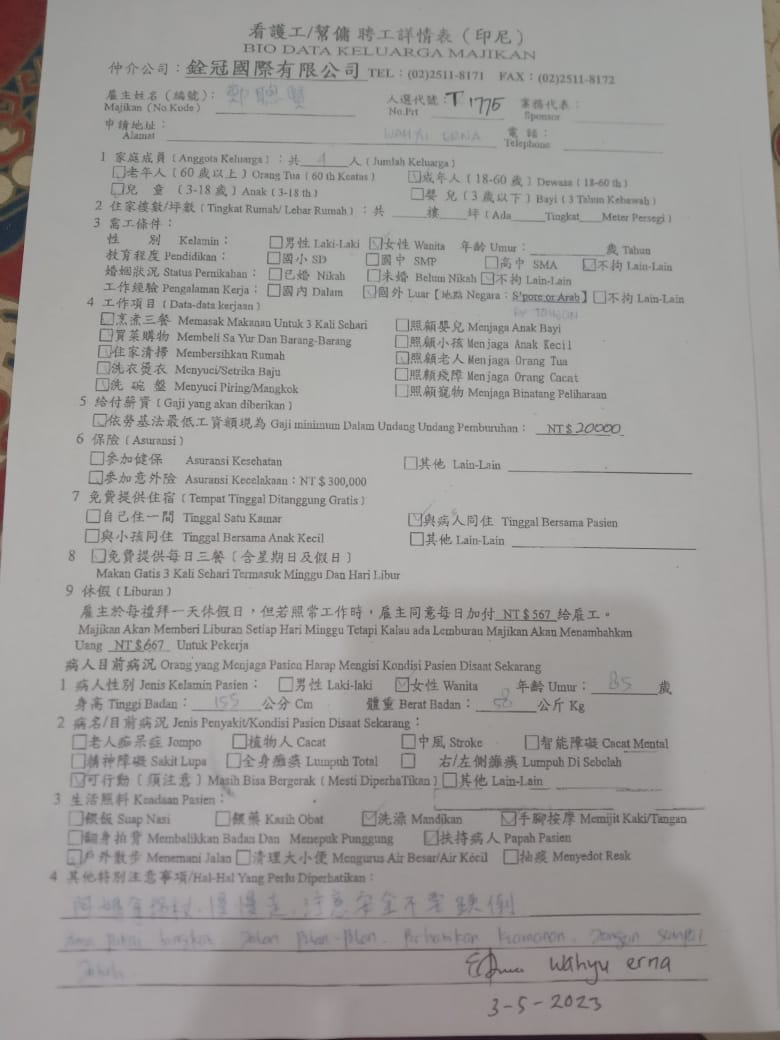 看護工/幫傭 聘工詳情表（印尼）
BIO DATA KELUARGA MAJIKAN
仲介公司：銓冠國際有限公司 TEL：(02)2511-8171 FAX：(02)2511-8172
雇主姓名（編號）： 鄭聰賢 人選代號：T1775 業務代表：
Majikan (No.Kode) No.Prt Sponsor
申請地址： WAHYU ERNA 電話：
Alamat Telephone
1 家庭成員（Anggota Keluarga）：共 4 人（Jumlah Keluarga）
□老年人（60歲以上）Orang Tua（60 th Keatas） ☑成年人（18-60歲）Dewasa（18-60 th）
□兒 童（3-18歲）Anak（3-18 th） □嬰兒（3歲以下）Bayi（3 Tahun Kebawah）
2 住家樓數/坪數（Tingkat Rumah/ Lebar Rumah）：共 樓 坪（Ada Tingkat Meter Persegi）
3 需工條件：
性 別 Kelamin： □男性 Laki-Laki ☑女性 Wanita 年齡 Umur： 歲 Tahun
教育程度 Pendidikan： □國小 SD □國中 SMP □高中 SMA ☑不拘 Lain-Lain
婚姻狀況 Status Pernikahan： □已婚 Nikah □未婚 Belum Nikah ☑不拘 Lain-Lain
工作經驗 Pengalaman Kerja： □國內 Dalam ☑國外 Luar【地點 Negara：S'pore or Arab】□不拘 Lain-Lain
4 工作項目（Data-data kerjaan）
☑烹煮三餐 Memasak Makanan Untuk 3 Kali Sehari □照顧嬰兒 Menjaga Anak Bayi
☑買菜購物 Membeli Sa Yur Dan Barang-Barang □照顧小孩 Menjaga Anak Kecil
☑住家清掃 Membersihkan Rumah ☑照顧老人 Menjaga Orang Tua
☑洗衣燙衣 Menyuci/Setrika Baju □照顧殘障 Menjaga Orang Cacat
☑洗 碗 盤 Menyuci Piring/Mangkok □照顧寵物 Menjaga Binatang Peliharaan
5 給付薪資（Gaji yang akan diberikan）
☑依勞基法最低工資額現為 Gaji minimum Dalam Undang Undang Pemburuhan： NT$20000
6 保險（Asuransi）
□參加健保 Asuransi Kesehatan □其他 Lain-Lain
☑參加意外險 Asuransi Kecelakaan：NT$300,000
7 免費提供住宿（Tempat Tinggal Ditanggung Gratis）
□自己住一間 Tinggal Satu Kamar ☑與病人同住 Tinggal Bersama Pasien
□與小孩同住 Tinggal Bersama Anak Kecil □其他 Lain-Lain
8 ☑免費提供每日三餐（含星期日及假日）
Makan Gatis 3 Kali Sehari Termasuk Minggu Dan Hari Libur
9 休假（Liburan）
雇主於每禮拜一天休假日，但若照常工作時，雇主同意每日加付 NT$567 給雇工。
Majikan Akan Memberi Liburan Setiap Hari Minggu Tetapi Kalau ada Lemburan Majikan Akan Menambahkan
Uang NT$667 Untuk Pekerja
病人目前病況 Orang yang Menjaga Pasien Harap Mengisi Kondisi Pasien Disaat Sekarang
1 病人性別 Jenis Kelamin Pasien： □男性 Laki-laki ☑女性 Wanita 年齡 Umur： 85 歲
身高 Tinggi Badan： 155 公分 Cm 體重 Berat Badan： 公斤 Kg
2 病名/目前病況 Jenis Penyakit/Kondisi Pasien Disaat Sekarang：
□老人痴呆症 Jompo □植物人 Cacat □中風 Stroke □智能障礙 Cacat Mental
□精神障礙 Sakit Lupa □全身癱瘓 Lumpuh Total □ 右/左側癱瘓 Lumpuh Di Sebelah
☑可行動（須注意）Masih Bisa Bergerak（Mesti DiperhaTikan）□其他 Lain-Lain
3 生活照料 Keadaan Pasien：
□餵飯 Suap Nasi □餵藥 Kasih Obat ☑洗澡 Mandikan ☑手腳按摩 Memijit Kaki/Tangan
□翻身拍背 Membalikkan Badan Dan Menepuk Punggung ☑扶持病人 Papah Pasien
☑戶外散步 Menemani Jalan □清理大小便 Mengurus Air Besar/Air Kecil □抽痰 Menyedot Reak
4 其他特別注意事項/Hal-Hal Yang Perlu Diperhatikan：
阿媽拿拐杖，慢慢走，注意安全不要跌倒
Ama pakai tongkat Jalan pelan-pelan. Perhatikan Keamanan. Jangan sampai
Jatuh
Wahyu erna
3-5-2023